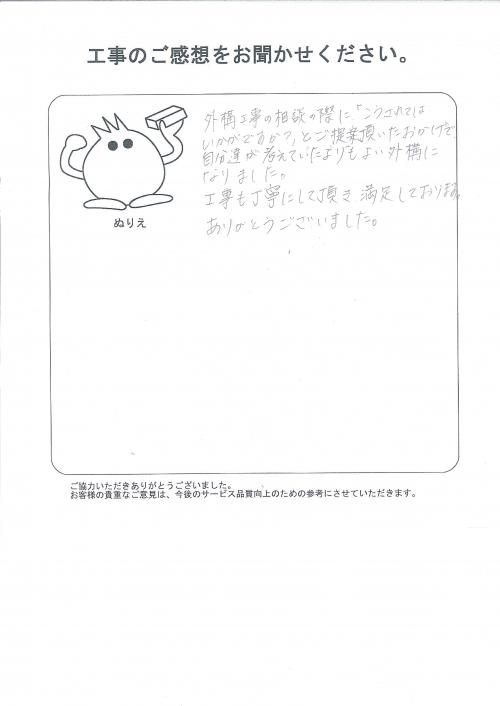 工事のご感想をお聞かせください。
外構工事の相談の際に「こうされては
いかがですか?」とご提案頂いたおかげで
自分達が考えていたよりもよい外構に
なりました。
工事も丁寧にして頂き満足しております。
ありがとうございました。
ぬりえ
ご協力いただきありがとうございました。
お客様の貴重なご意見は、今後のサービス品質向上のための参考にさせていただきます。